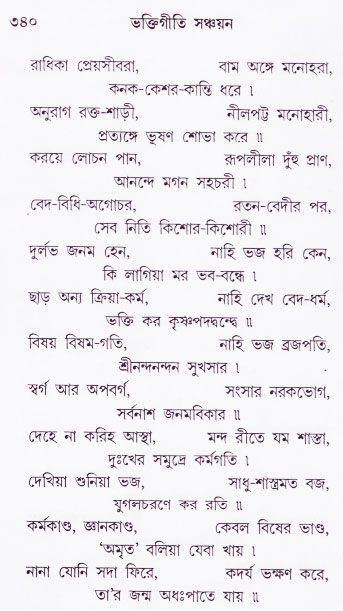 ৩৪০ ভক্তিগীতি সঞ্চয়ন
রাধিকা প্রেয়সীবরা, বাম অঙ্গে মনোহরা,
কনক-কেশর-কান্তি ধরে ।
অনুরাগ রক্ত-শাড়ী, নীলপট্ট মনোহারী,
প্রত্যঙ্গে ভূষণ শোভা করে ॥
করয়ে লোচন পান, রূপলীলা দুঁহু প্রাণ,
আনন্দে মগন সহচরী ।
বেদ-বিধি-অগোচর, রতন-বেদীর পর,
সেব নিতি কিশোর-কিশোরী ॥
দুর্লভ জনম হেন, নাহি ভজ হরি কেন,
কি লাগিয়া মর ভব-বন্ধে ।
ছাড় অন্য ক্রিয়া-কর্ম, নাহি দেখ বেদ-ধর্ম,
ভক্তি কর কৃষ্ণপদদ্বন্দ্বে ॥
বিষয় বিষম-গতি, নাহি ভজ ব্রজপতি,
শ্রীনন্দনন্দন সুখসার ।
স্বর্গ আর অপবর্গ, সংসার নরকভোগ,
সর্বনাশ জনমবিকার ॥
দেহে না করিহ আস্থা, মন্দ রীতে যম শাস্তা,
দুঃখের সমুদ্রে কর্মগতি ।
দেখিয়া শুনিয়া ভজ, সাধু-শাস্ত্রমত বজ,
যুগলচরণে কর রতি ॥
কর্মকাণ্ড, জ্ঞানকাণ্ড, কেবল বিষের ভাণ্ড,
‘অমৃত’ বলিয়া যেবা খায় ।
নানা যোনি সদা ফিরে, কদর্য ভক্ষণ করে,
তা'র জন্ম অধঃপাতে যায় ॥